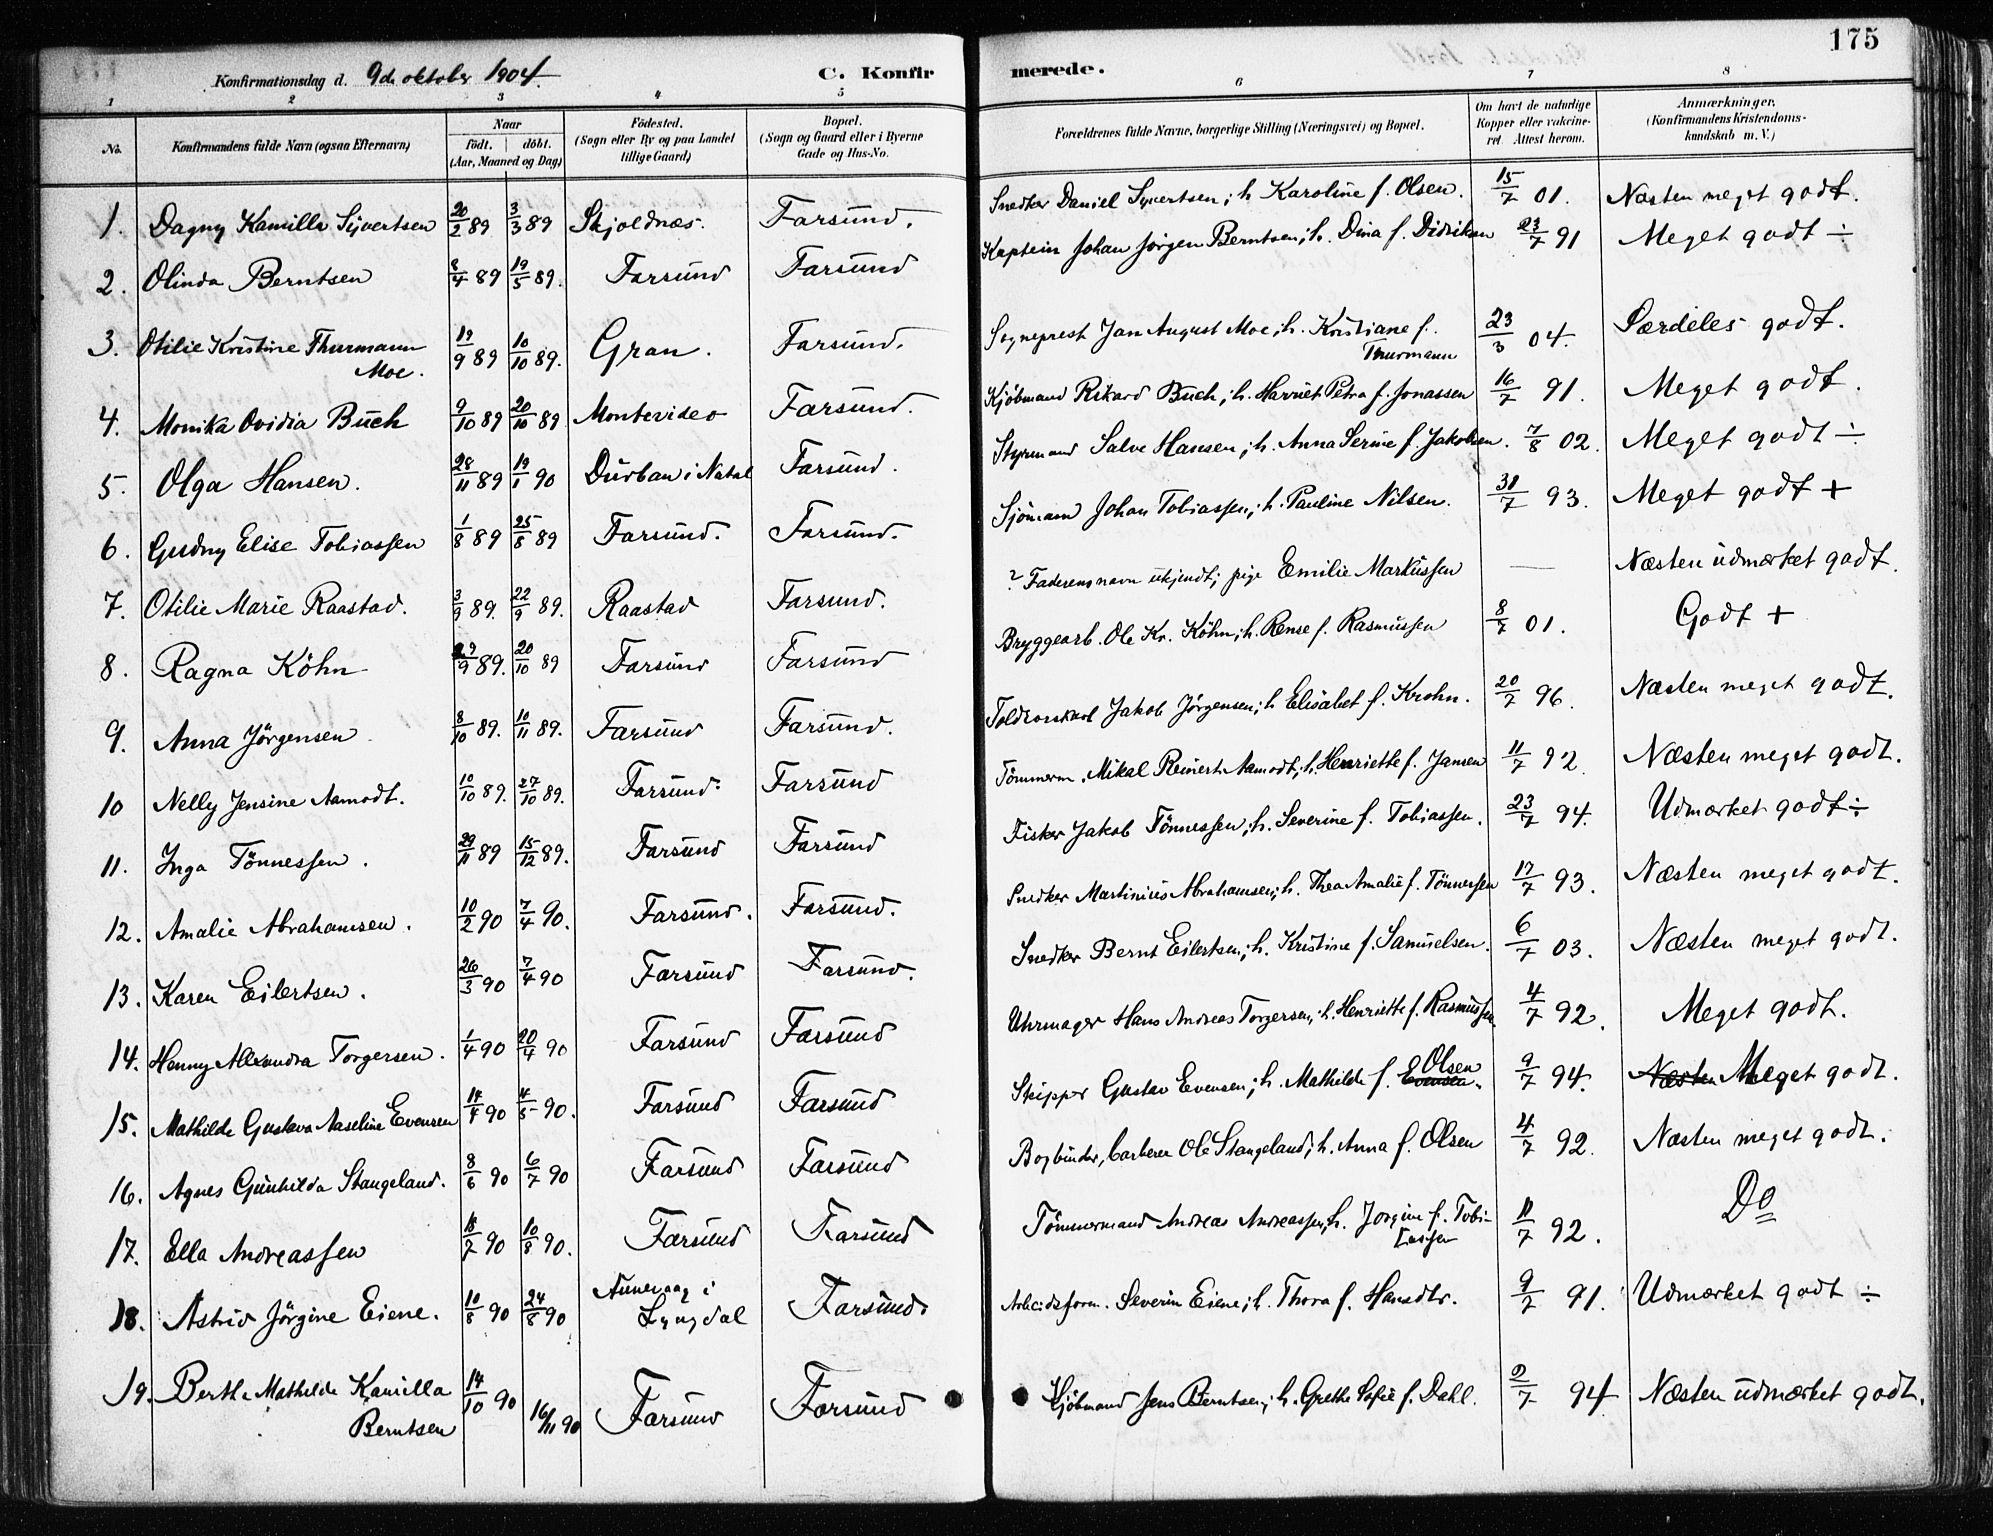 175
Konfirmationsdag d. 9de oktober 1904.
C. Konfirmerede.
1 2 3 4 5 6 7 8
No. Konfirmandens fulde Navn (ogsaa Efternavn) Naar födt. döbt. (Aar, Maaned og Dag) Födested. (Sogn eller By og paa Landet tillige Gaard) Bopæl. (Sogn og Gaard eller i Byerne Gade og Hus-No. Forældrenes fulde Navne, borgerlige Stilling (Næringsvei) og Bopæl. Om havt de naturlige Kopper eller vakcineret Attest herom. Anmærkninger. (Konfirmandens Kristendomskundskab m. V.)
1. Dagny Kamilla Syvertsen 20/2 89 3/3 89 Skjoldnæs. Farsund. Snedker Daniel Syvertsen; h. Karoline f. Olsen. 15/7 01. Næsten meget godt.
2. Olinda Berntsen 8/4 89 19/5 89. Farsund Farsund Kaptein Johan Jørgen Berntsen; h. Dina f. Didriksen 23/7 91 Meget godt ÷
3. Otilie Kristine Thurmann Moe. 19/9 89 10/10 89. Gran. Farsund. Sogneprest Jan August Moe; h. Kristiane f. Thurmann 23/3 04. Særdeles godt.
4. Monika Ovidia Buch 9/10 89 20/10 89 Montevideo Farsund. Kjöbmand Rikard Buch; h. Harriet Petra f. Jonassen 16/7 91. Meget godt.
5. Olga Hansen. 28/11 89 19/1 90 Durban i Natal Farsund. Styrmand Salve Hansen; h. Anna Serine f. Jakobsen. 7/8 02. Meget godt ÷
6. Gudny Elise Tobiassen 1/8 89 25/8 89 Farsund. Farsund. Sjömann Johan Tobiassen; h. Pauline Nilsen. 31/7 93. Meget godt +
7. Otilie Marie Raastad. 3/9 89. 22/9 89. Raastad Farsund. ? Faderens navn ukjendt; pige Emilie Markussen — Næsten udmærket godt.
8. Ragna Köhn 29/9 89. 20/10 89 Farsund Farsund Bryggearb. Ole Kr. Köhn; h. Rense f. Rasmussen 8/7 01. Godt +
9. Anna Jörgensen 8/10 89. 10/11 89. Farsund Farsund. Jakob Jörgensen; h. Elisabet f. Krohn. 20/7 96. Næsten meget godt.
10 Nelly Jensine Aamodt. 10/10 89. 27/10 89. Farsund. Farsund Tömmerm. Mikal Reinert Aamodt; h. Henriette f. Jansen 11/7 92. Næsten meget godt.
11. Inga Tönnessen. 29/11 89 15/12 89. Farsund Farsund Fisker Jakob Tönnessen; h. Severine f. Tobiassen. 23/7 94. Udmærket godt ÷
12. Amalie Abrahamsen. 10/2 90 7/4 90. Farsund. Farsund. Snedker Martinius Abrahamsen; h. Thea Amalie f. Tönnessen 17/7 93. Næsten meget godt.
13. Karen Eilertsen. 26/3 90 7/4 90 Farsund Farsund. Snedker Bernt Eilertsen; h. Kristine f. Samuelsen. 6/7 03. Næsten meget godt.
14. Henny Alexandra Torgersen. 1/4 90 20/4 90 Farsund Farsund Uhrmager Hans Andreas Torgersen; h. Henriette f. Rasmussen 4/7 92. Meget godt.
15. Mathilde Gustava Aaseline Evensen 14/4 90 4/5 90. Farsund Farsund Skipper Gustav Evensen; h. Mathilde f. Evensen. Olsen 9/7 94. Næsten Meget godt.
16. Agnes Gunhilda Stangeland. 8/6 90 6/7 90 Farsund Farsund Bogbinder, barberer Ole Stangeland; h. Anna f. Olsen 4/7 92. Næsten meget godt.
17. Ella Andreassen 18/7 90 10/8 90. Farsund Farsund Tömmermand Andreas Andreassen; h. Jorgine f. Tobiassen 11/7 92. Do
18. Astrid Jörgine Eiene. 10/8 90 24/8 90 i Lyngdal Farsund. Arbeidsform. Severin Eiene; h. Thora f. Hansdtr. 9/7 91. Udmærket godt ÷
19. Mathilde Kamilla Berntsen 14/10 90 16/11 90 Farsund Farsund Kjöbmand Jens Berntsen; h. Grethe Sofie f. Dahl. 9/7 94 Næsten udmærket godt.